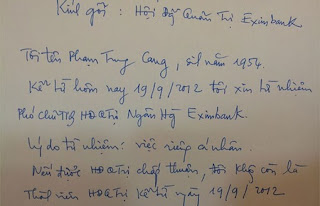 Kính gởi : Hội đg Quản Trị Eximbank
Tôi tên Phạm Trung Cang, sil năm 1954.
Kể từ hôm nay 19/9/2012 tôi xin từ nhiệm
Phó chủ tịch HĐQTrị Ngân Hg Eximbank.
Lý do từ nhiệm: việc riêng cá nhân.
Nếu được HĐQTrị chấp thuận, tôi khg còn là
Thành viên HĐQTrị kể từ ngày 19/9/2012